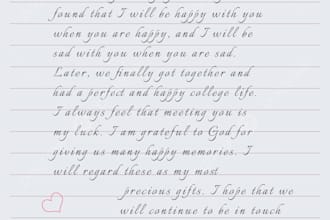 found that I will be happy with you
when you are happy, and I will be
sad with you when you are sad.
Later, we finally got together and
had a perfect and happy college life.
I always feel that meeting you is
my luck. I am grateful to God for
giving us many happy memories. I
will regard these as my most
precious gifts. I hope that we
will continue to be in touch